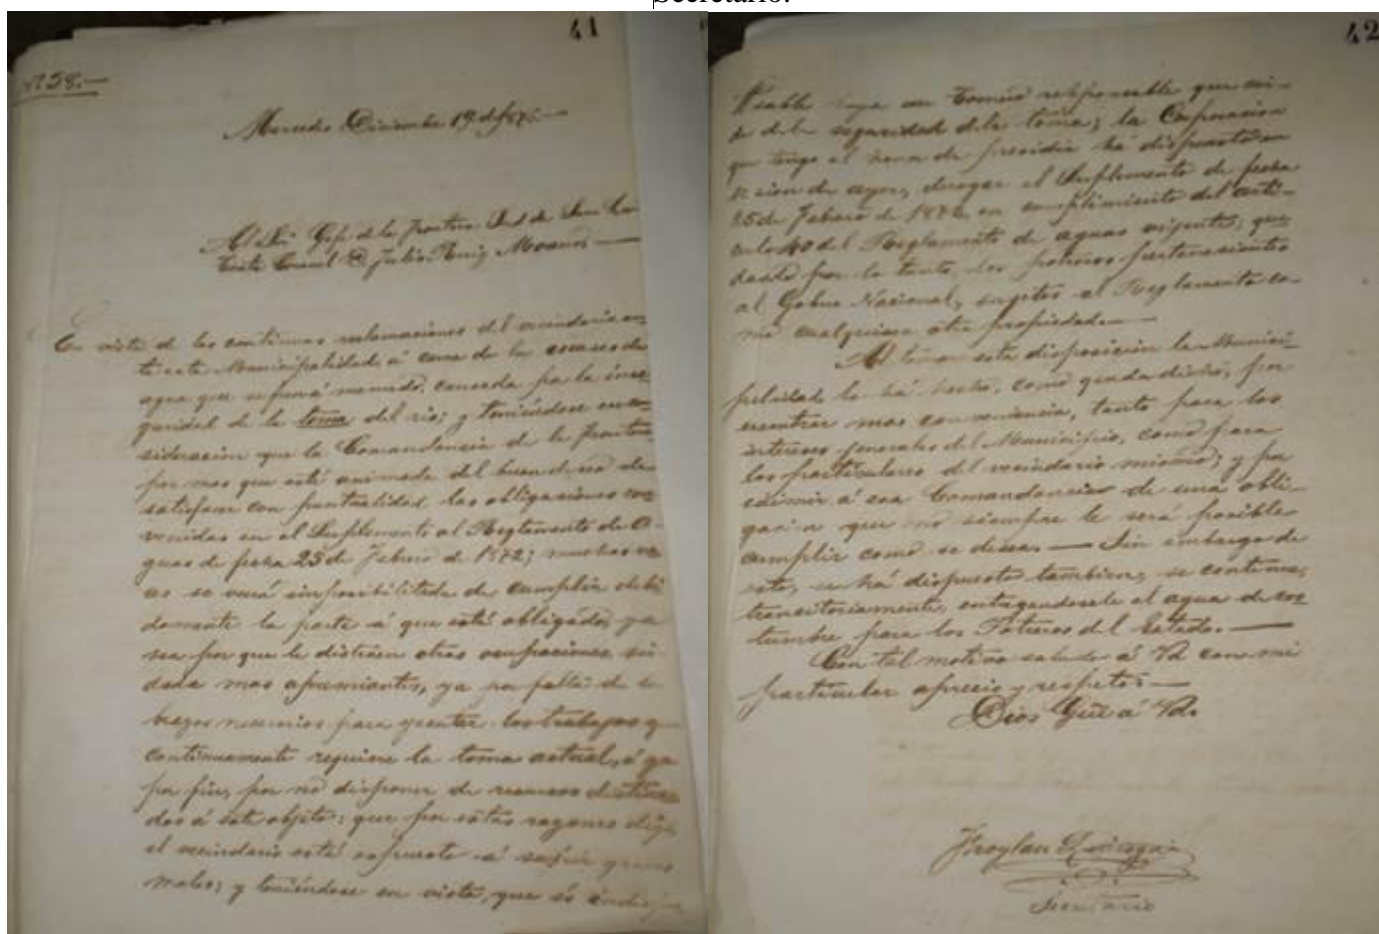 Secretario.
41
N 58.—
Mercedes Diciembre 19 de 187
Al Sor Gefe de la frontera Sud de San Lu
Tente Coronel D Julio Ruiz Moreno—
En vista de las continuas reclamaciones del vecindario an
te esta Municipalidad á causa de la escases de
agua que sufre á menudo, causada por la inse
guridad de la toma del rio; y teniéndose en con
sideracion que la Comandancia de la fronte
por mas que esté animada del buen deseo de
satisfacer con puntualidad las obligaciones con
venidas en el Suplemento al Reglamento de A-
guas de fecha 25 de Febrero de 1872; muchas ve
ces se verá imposibilitada de cumplir debi
damente la parte á que está obligada, ya
sea por que le distraen otras ocupaciones sin
duda mas apremiantes, ya por falta de
brazos necesarios para ejecutar los trabajos q
continuamente requiere la toma actual, ó ya
por fin, por no disponer de recursos destina
dos á este objeto: que por estas razones
el vecindario está espuesto á sufrir graves
males; y teniéndose en vista, que es indispen
42
sable haya un Comun responsable que cui-
de de la seguridad de la toma; la Corporacion
que tengo el honor de presidir ha dispuesto en
sesion de ayer, derogar el Suplemento de fecha
25 de Febrero de 1872, en cumplimiento del arti-
culo 40 del Reglamento de aguas vigente; que
dando por lo tanto, los potreros pertenecientes
al Gobno Nacional, sugetos al Reglamento co-
mo cualquiera otra propiedad.—
Al tomar esta disposicion la Munici-
palidad lo há hecho, como queda dicho, por
encontrar mas conveniencia, tanto para los
intereses generales del Municipio, como para
los particulares del vecindario mismo; y por
eximir á esa Comandancia de una obli-
gacion que no siempre le será posible
cumplir como se desea.— Sin embargo de
esto, se há dispuesto tambien, se continue,
transitoriamente, entregandosele el agua de cos
tumbre para los Potreros del Estado.—
Con tal motivo saludo á Vd con mi
particular aprecio y respeto:—
Dios Gue á Vd.
Froylan
Secretario